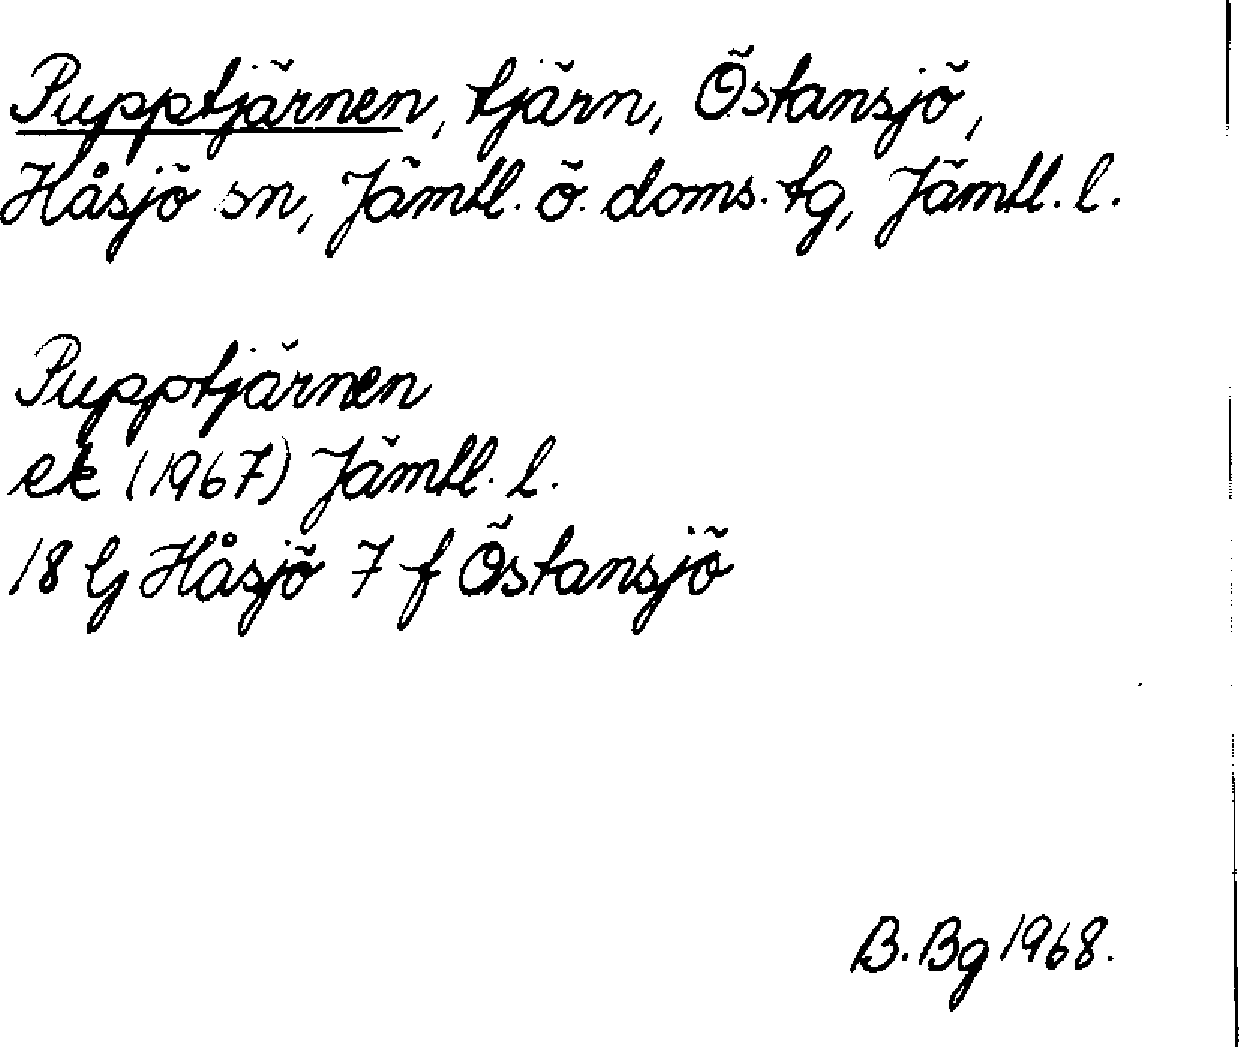 Pupptjärnen, tjärn, Östansjö,
Håsjö sn, Jämtl. ö. doms. tg, Jämtl. l.
Pupptjärnen
ek (1967) Jämtl. l.
18 G Håsjö 7 f Östansjö
B. Bg 1968.